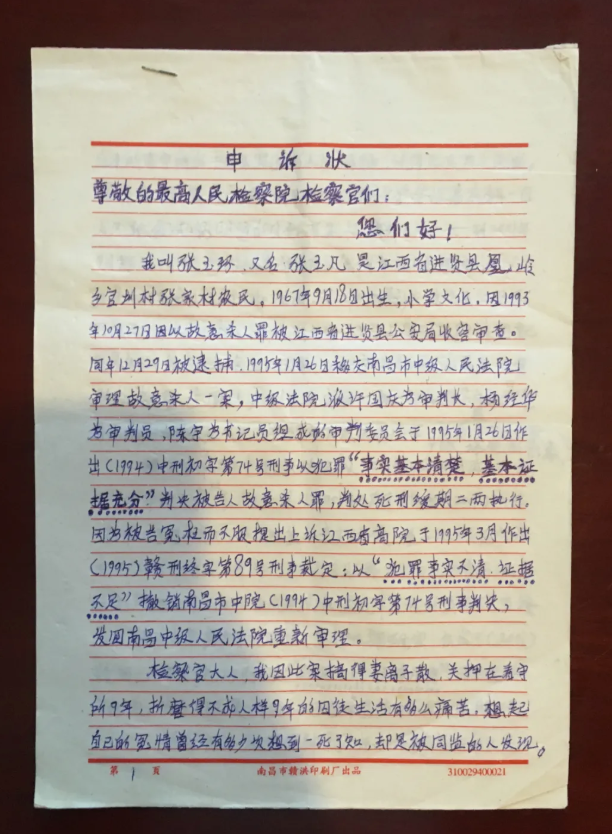 申诉状
尊敬的最高人民检察院检察官们：
您们好！
我叫张玉环，又名张玉凡是江西省进贤县凰岭
乡官圳村张家村农民，1967年9月18日出生，小学文化，因1993
年10月27日因以故意杀人罪被江西省进贤县公安局收容审查。
同年12月29日被逮捕，1995年1月26日移交南昌市中级人民法院
审理故意杀人一案，中级法院派许国庆为审判长，杨经华
为审判员，陈宇为书记员组成的审判委员会于1995年1月26日作
出（1994）中刑初字第74号刑事以犯罪“事实基本清楚，基本证
据充分”判决被告人故意杀人罪，判处死刑缓期二两执行。
因为被告冤枉而不服提出上诉江西省高院于1995年3月作出
（1995）赣刑终字第89号刑事裁定：以“犯罪事实不清、证据
不足”撤销南昌市中院（1994）中刑初字第74号刑事判决，
发回南昌中级人民法院重新审理。
检察官大人，我因此案搞得妻离子散，关押在看守
所9年，折磨得不成人样9年的囚徒生活有多么痛苦，想起
自己的冤情曾经有多少次想到一死了知，却是被同监的人发现。
第 1 页 南昌市赣洪印刷厂出品 310029400021